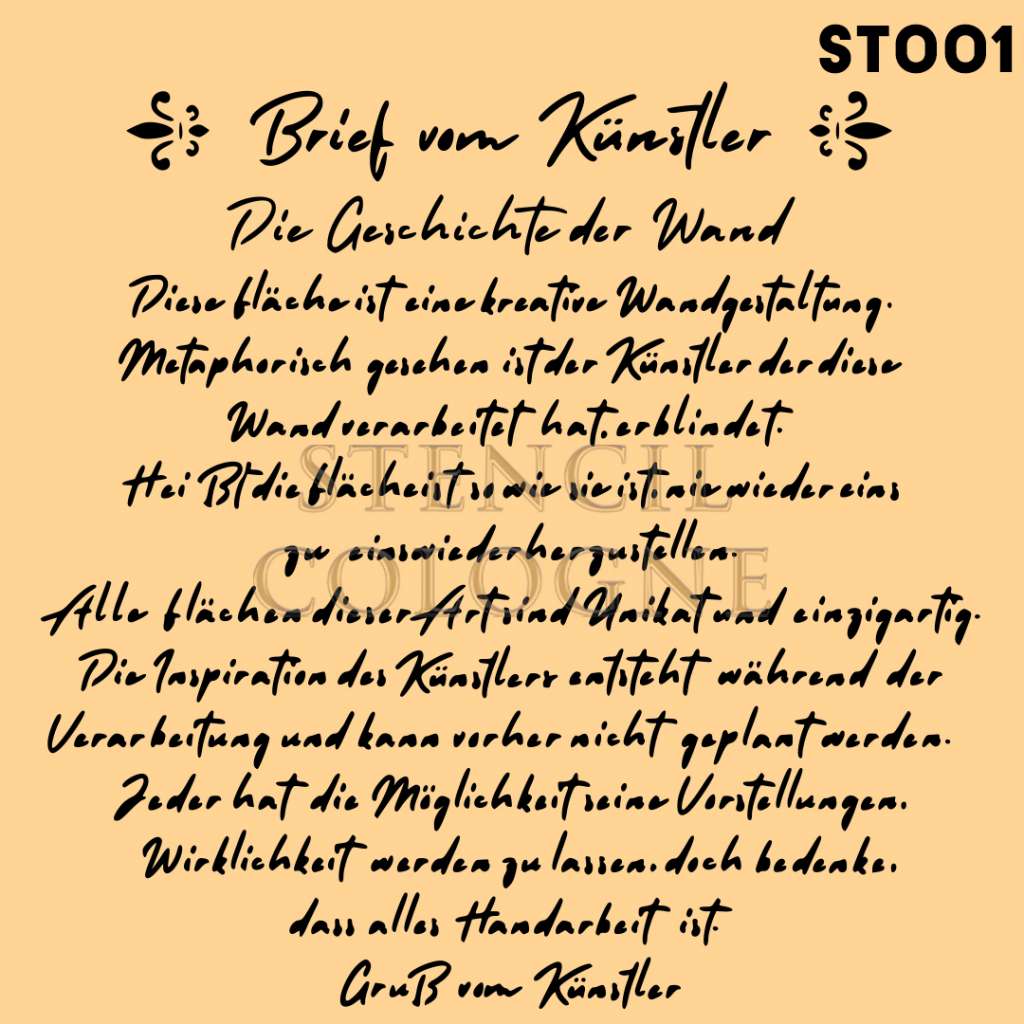 ST001
Brief vom Künstler
Die Geschichte der Wand
Diese fläche ist eine kreative Wandgestaltung.
Metaphorisch gesehen ist der Künstler der diese
Wand verarbeitet hat, erblindet.
HeiBt die fläche ist, so wie sie ist, nie wieder eins
STENCIL
zu eins wiederherzustellen.
COLOGNE
Alle flächen dieser Art sind Unikat und einzigartig.
Die Inspiration des Künstlers entsteht während der
Verarbeitung und kann vorher nicht geplant werden.
Jeder hat die Möglichkeit seine Vorstellungen,
Wirklichkeit werden zu lassen, doch bedenke,
dass alles Handarbeit ist.
GruB vom Künstler